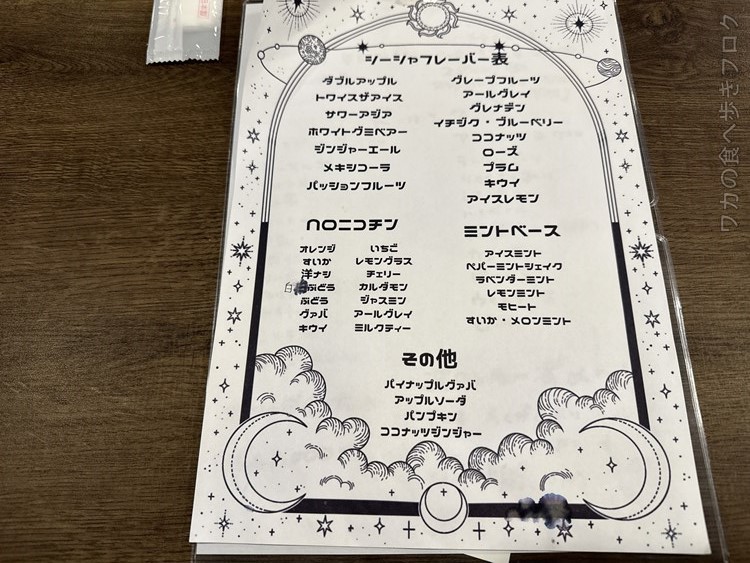 シーシャフレーバー表
ダブルアップル
トワイスザアイス
サワーアジア
ホワイトグミベアー
ジンジャーエール
メキシコーラ
パッションフルーツ
グレープフルーツ
アールグレイ
グレナデン
イチジク・ブルーベリー
ココナッツ
ローズ
プラム
キウイ
アイスレモン
ノンニコチン
オレンジ
すいか
洋ナシ
白ぶどう
ぶどう
グァバ
キウイ
いちご
レモングラス
チェリー
カルダモン
ジャスミン
アールグレイ
ミルクティー
ミントベース
アイスミント
ペパーミントシェイク
ラベンダーミント
レモンミント
モヒート
すいか・メロンミント
その他
パイナップルグァバ
アップルソーダ
パンプキン
ココナッツジンジャー
ワカの食べ歩きブログ